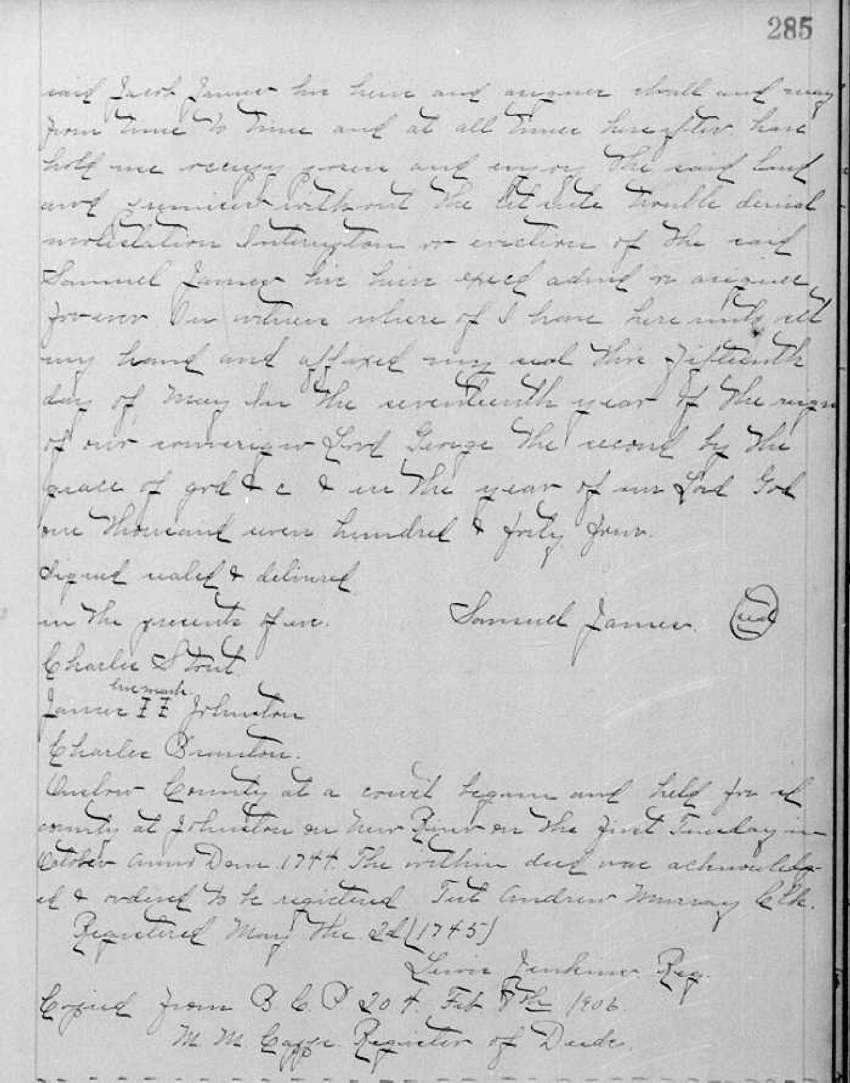 285
said Jacob James his heirs and assignes shall and may
from time to time and at all times hereafter have
hold use occupy posess and enjoy the said land
and premises without the let sute trouble denial
molistation Interuption or eviction of the said
Samuel James his heirs exced admid or assignes
for ever. In witness where of I have here unto set
my hand and affixed my seal this fifteenth
day of May In the seventeenth year of the reign
of our soveriegn Lord George the second by the
grace of god & c & in the year of our Lord God
one thousand seven hundred & forty four.
Signed sealed & delivered
in the presents of us. Samuel James. seal
Charles Stout.
his mark
James I I Johnston
Charles Brunton.
Onslow County at a court begun and held for sd
county at Johnston on New River on the first Tuesday in
October Anno Dom. 1744. The within deed was acknowledg-
ed & ordered to be registered Test Andrew Murray Clk.
Registered May the 2d (1745)
Lewis Jenkins Reg.
Copied from B C. P 204. Feb 8th 1906.
M. M. Capps. Register of Deeds.